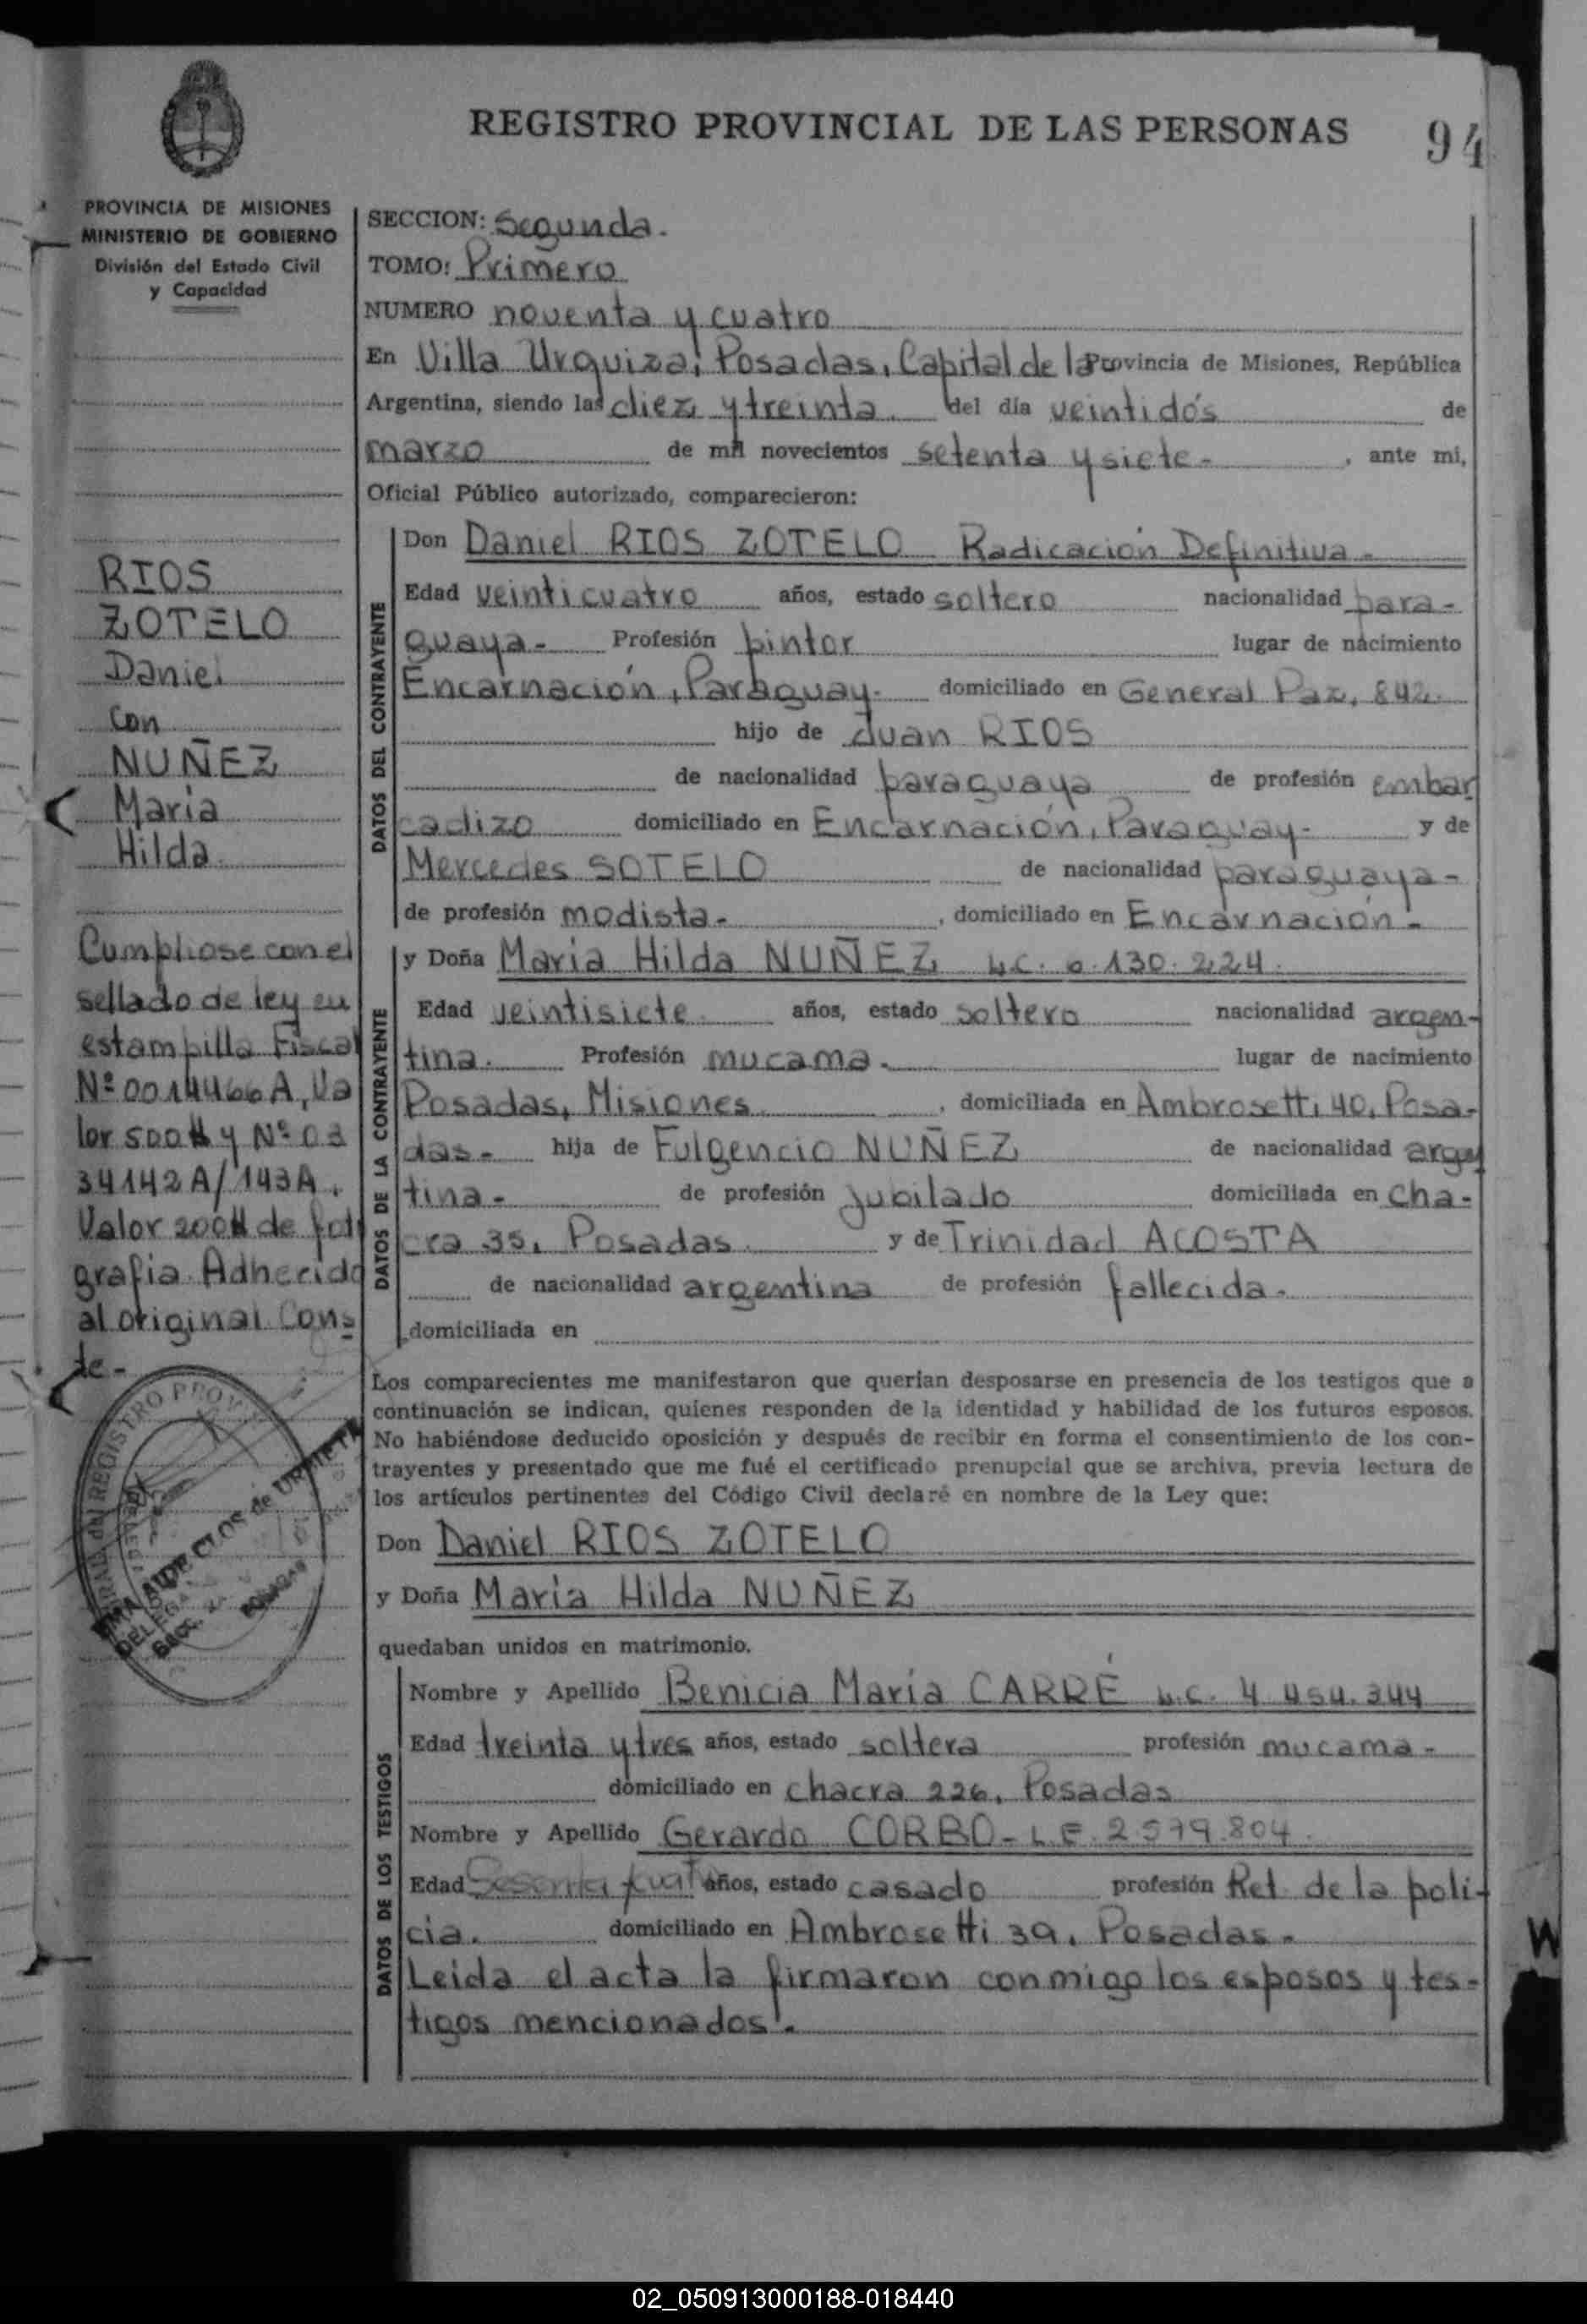 REGISTRO PROVINCIAL DE LAS PERSONAS 94
PROVINCIA DE MISIONES
MINISTERIO DE GOBIERNO
División del Estado Civil
y Capacidad
SECCION: Segunda.
TOMO: Primero
NUMERO noventa y cuatro
En Villa Urquiza, Posadas, Capital de la Provincia de Misiones, República
Argentina, siendo las diez y treinta. del día veintidós de
marzo de mil novecientos setenta y siete- , ante mi,
Oficial Público autorizado, comparecieron:
RIOS
ZOTELO
Daniel
con
NUÑEZ
Maria
Hilda
Cumpliose con el
sellado de ley en
estampilla Fiscal
Nº 0014466 A, Va
lor 500 y Nº 03
34142A/143A.
Valor 200 de fot
grafia Adherido
al original Cons
te-
DATOS DEL CONTRAYENTE
Don Daniel RIOS ZOTELO Radicación Definitiva-
Edad veinticuatro años, estado soltero nacionalidad para-
guaya- Profesión pintor lugar de nacimiento
Encarnación, Paraguay- domiciliado en General Paz, 842.
hijo de Juan RIOS
de nacionalidad paraguaya de profesión embar
cadizo domiciliado en Encarnación, Paraguay- y de
Mercedes SOTELO de nacionalidad paraguaya-
de profesión modista- , domiciliado en Encarnación-
DATOS DE LA CONTRAYENTE
y Doña Maria Hilda NUÑEZ L.C. 6.130.224.
Edad veintisiete. años, estado soltero nacionalidad argen-
tina. Profesión mucama. lugar de nacimiento
Posadas, Misiones , domiciliada en Ambrosetti 40, Posa-
das- hija de Fulgencio NUÑEZ de nacionalidad argen
tina- de profesión jubilado domiciliada en Cha-
cra 35, Posadas. y de Trinidad ACOSTA
de nacionalidad argentina de profesión fallecida.
domiciliada en
Los comparecientes me manifestaron que querían desposarse en presencia de los testigos que a
continuación se indican, quienes responden de la identidad y habilidad de los futuros esposos.
No habiéndose deducido oposición y después de recibir en forma el consentimiento de los con-
trayentes y presentado que me fué el certificado prenupcial que se archiva, previa lectura de
los artículos pertinentes del Código Civil declaré en nombre de la Ley que:
Don Daniel RIOS ZOTELO
y Doña Maria Hilda NUÑEZ
quedaban unidos en matrimonio.
DATOS DE LOS TESTIGOS
Nombre y Apellido Benicia María CARRÉ L.C. 4.454.344
Edad treinta y tres años, estado soltera profesión mucama-
domiciliado en chacra 226, Posadas
Nombre y Apellido Gerardo CORBO- L.E. 2.579.804.
Edad Sesenta y cuatro años, estado casado profesión Ret. de la poli-
cia. domiciliado en Ambrosetti 39, Posadas-
Leida el acta la firmaron conmigo los esposos y tes-
tigos mencionados.
02_050913000188-018440